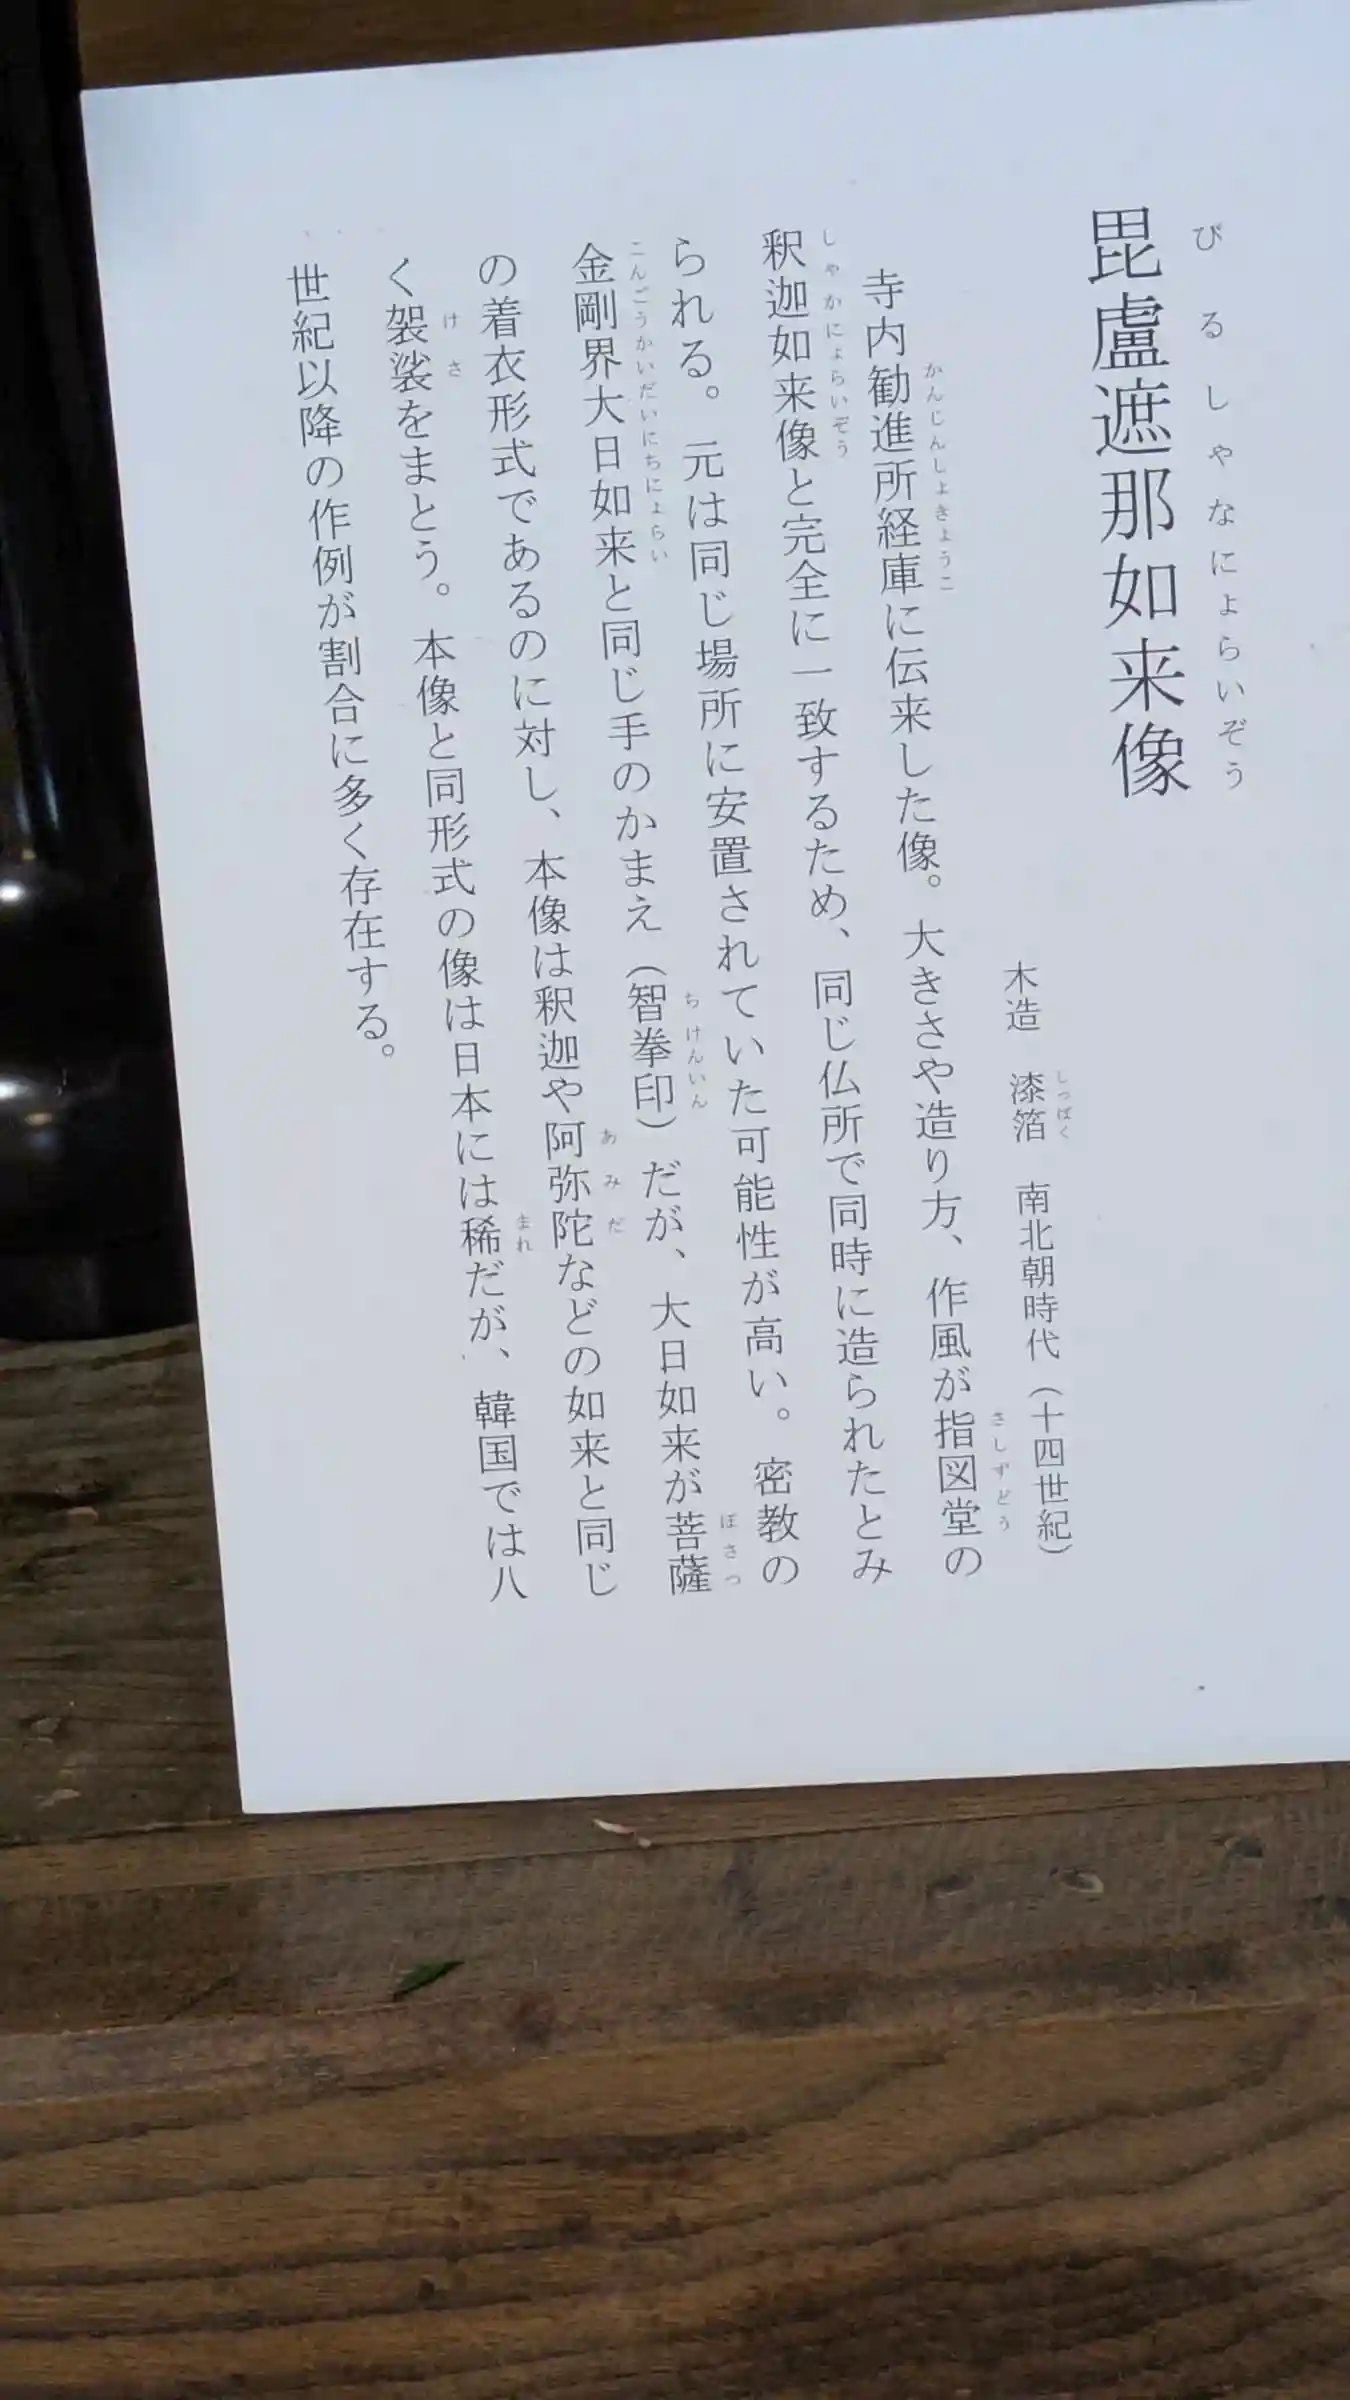 毘盧遮那如来像
びるしゃなにょらいぞう
木造　漆箔　南北朝時代（十四世紀）
しっぱく
寺内勧進所経庫に伝来した像。大きさや造り方、作風が指図堂の
かんじんしょきょうこ
さしずどう
釈迦如来像と完全に一致するため、同じ仏所で同時に造られたとみ
しゃかにょらいぞう
られる。元は同じ場所に安置されていた可能性が高い。密教の
金剛界大日如来と同じ手のかまえ（智拳印）だが、大日如来が菩薩
こんごうかいだいにちにょらい
ちけんいん
ぼさつ
の着衣形式であるのに対し、本像は釈迦や阿弥陀などの如来と同じ
あみだ
く袈裟をまとう。本像と同形式の像は日本には稀だが、韓国では八
けさ
まれ
世紀以降の作例が割合に多く存在する。